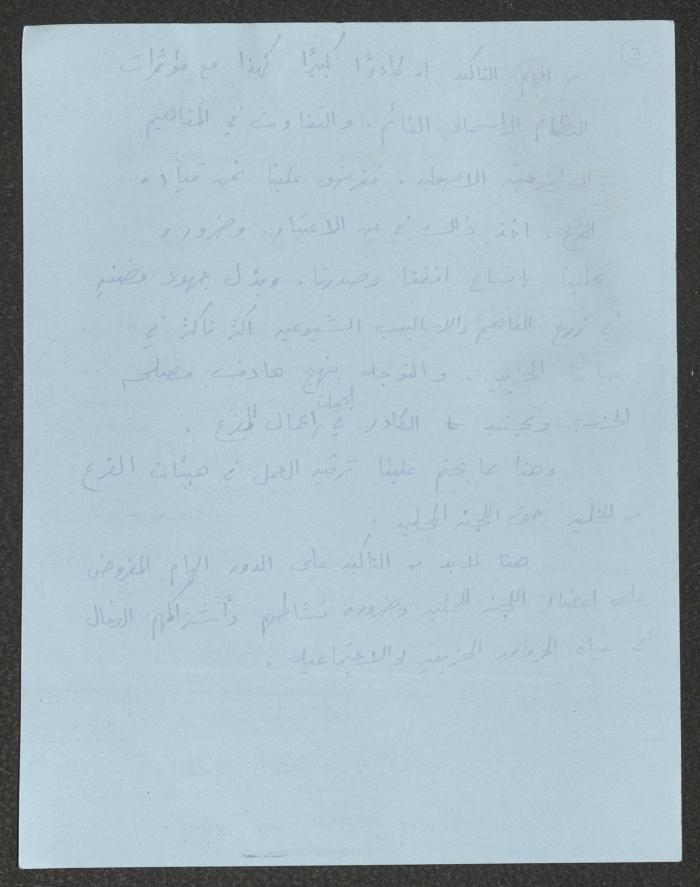 3
من المهم التاكيد ان كادرًا كبيرًا كهذا مع مؤثرات
النظام الراسمالي القائم . والتفاوت في المفاهيم
الشيوعيه الاصوليه . تفرض علينا نحن قياده
الفرع . اخذ ذلك في عين الاعتبار . وضروره
تحلينا بإتساع افقنا وصدرنا . وبذل جهود مضنيه
في زرع المفاهيم والاساليب الشيوعيه اكثر فاكثر في
حياتنا الحزبيه . والتوجه بنهج هادف مصلحه
الحزب وتجنيد الكادر في إنجاح إعمال الفرع .
وهذا مما يحتم علينا ترقيه العمل في هيئات الفرع
من الخليه حتى اللجنه المحليه .
هنا لابد من التاكيد على الدور الهام المفروض
على اعضاء اللجنه المحليه وضروره نشاطهم وأشتراكهم الفعال
في حياه المرفاقد الحزبيه والاجتماعيه .